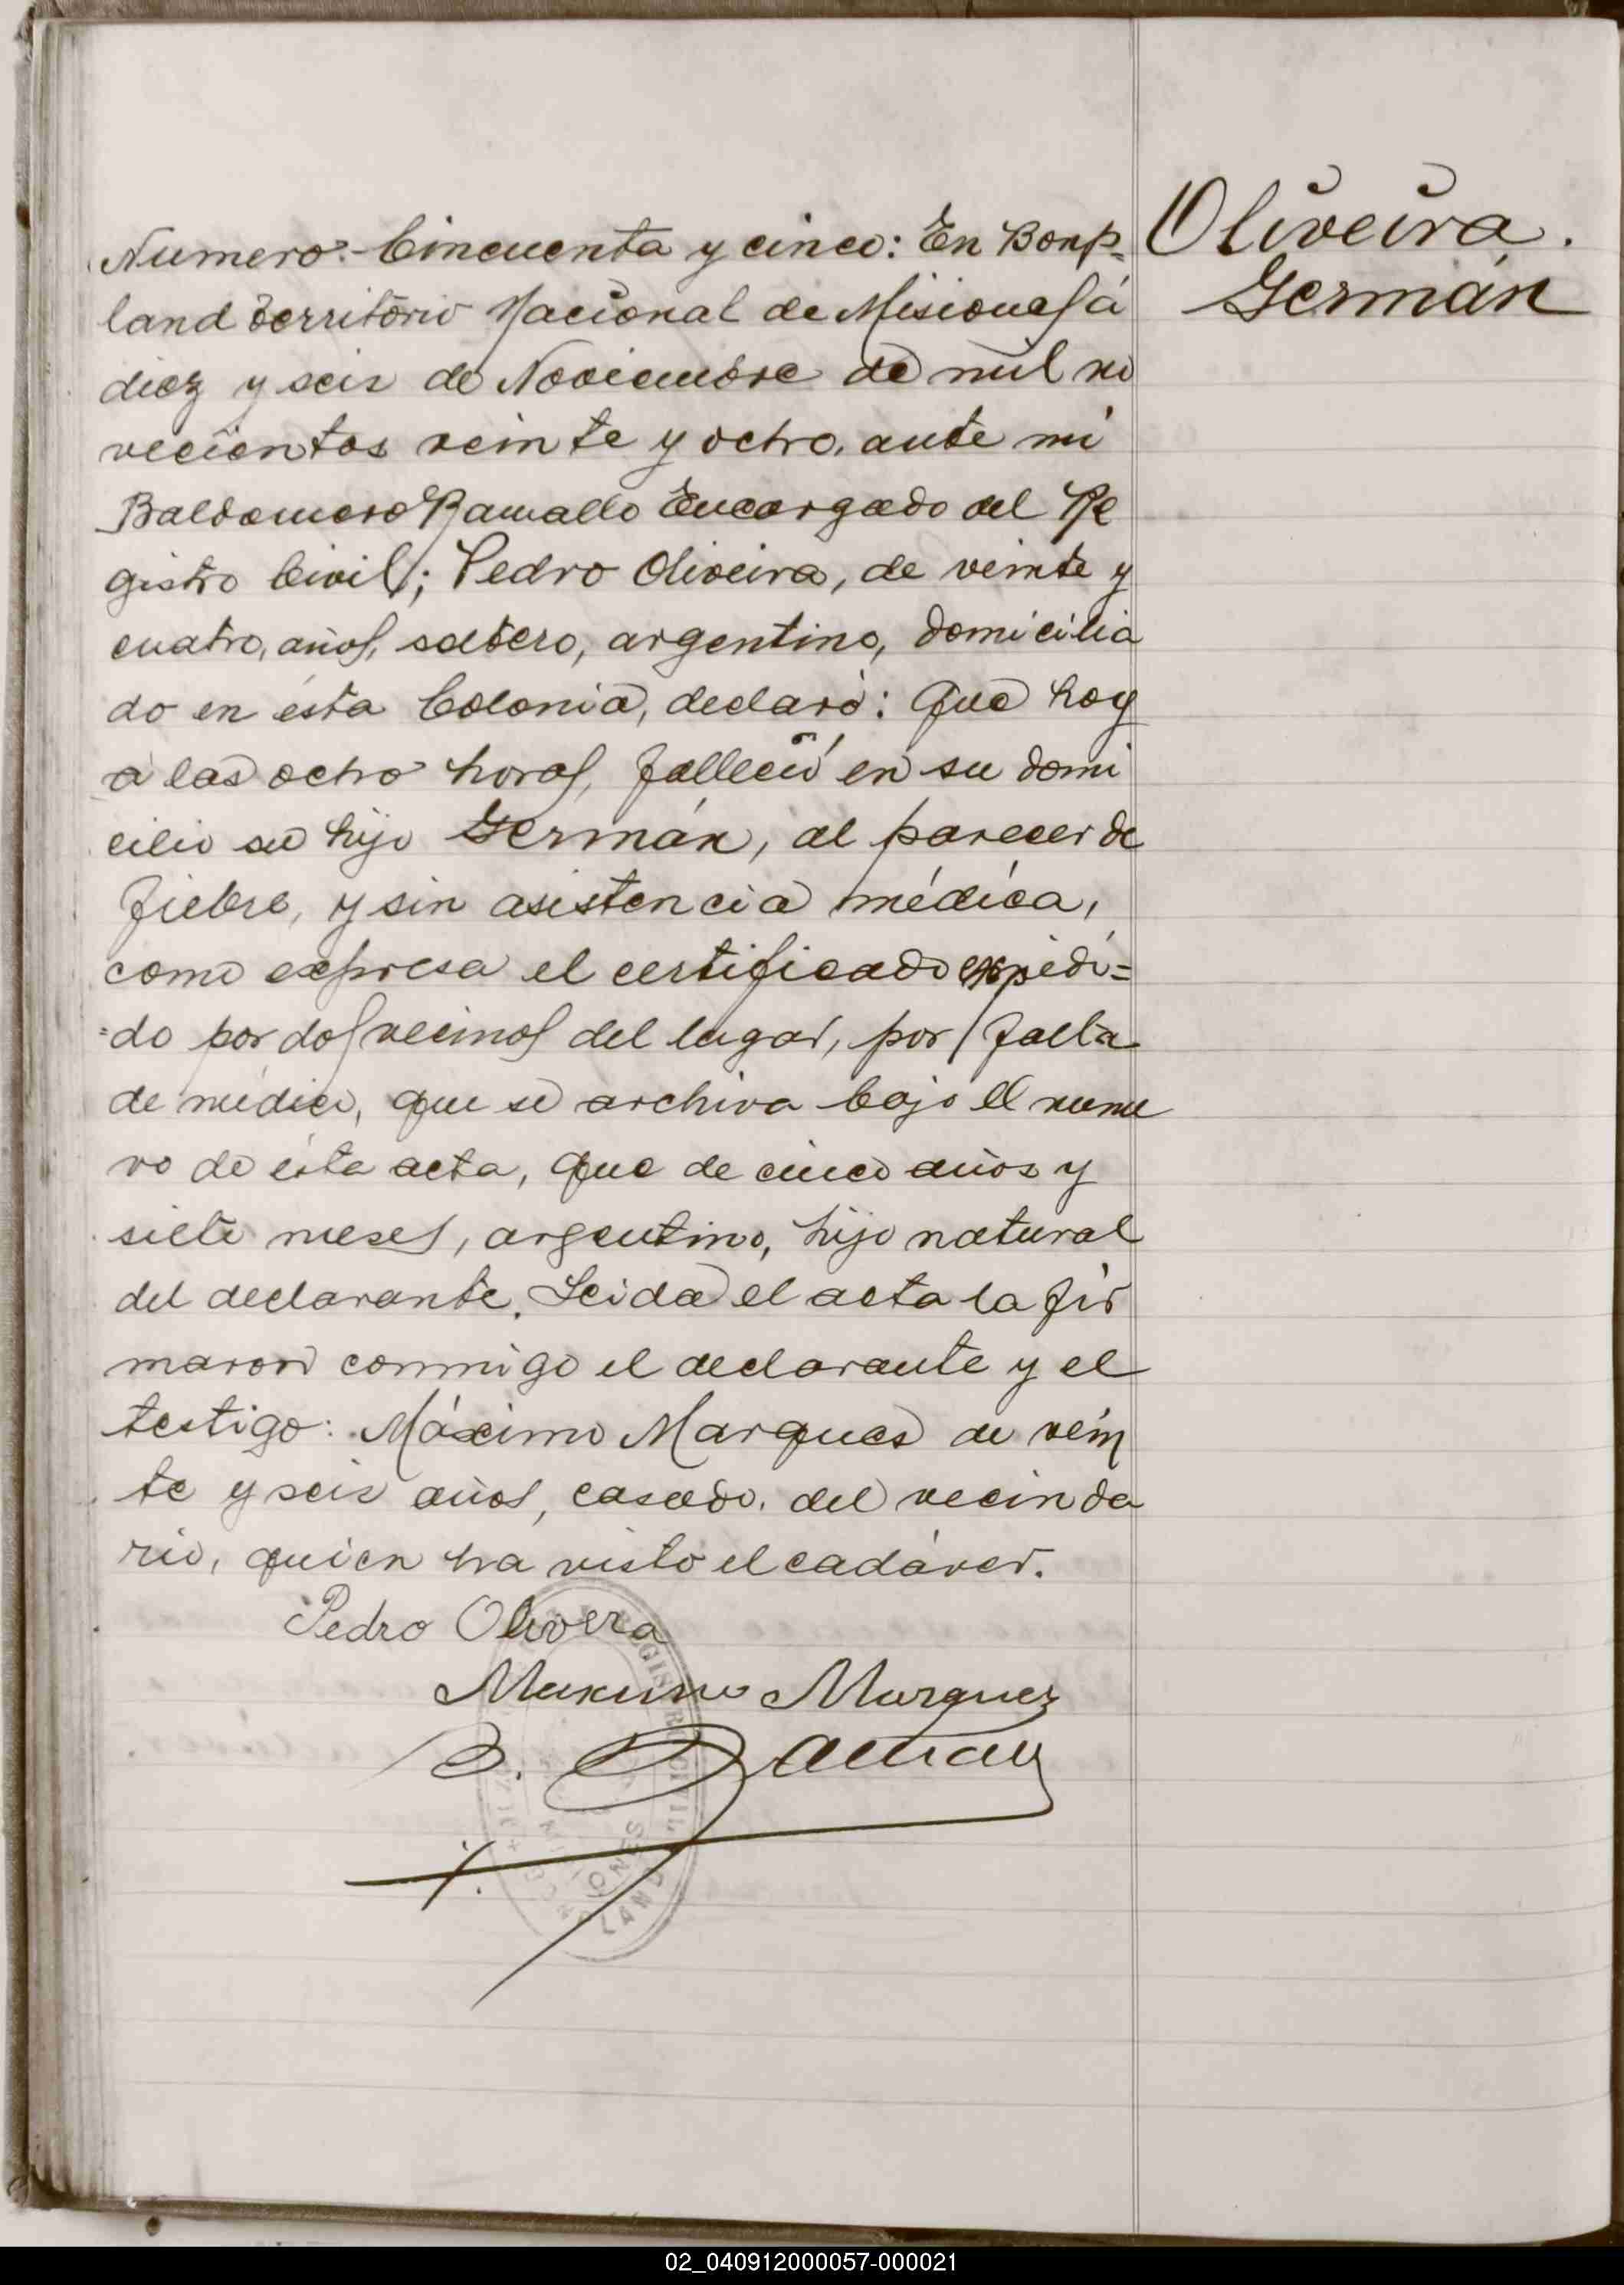 Oliveira.
Germán
Numero:- Cincuenta y cinco: En Bonp=
land Territorio Nacional de Misiones á
diez y seis de Noviembre de mil no
vecientos veinte y ocho, ante mí
Baldomero Ramallo Encargado del Re
gistro Civil; Pedro Oliveira, de veinte y
cuatro, años, soltero, argentino, domicilia
do en ésta Colonia, declaró: Que hoy
a las ocho horas, falleció en su domi
cilio su hijo Germán, al parecer de
fiebre, y sin asistencia médica,
como expresa el certificado expedi=
=do por dos vecinos del lugar, por falta
de médico, que se archiva bajo el nume
ro de ésta acta, que de cinco años y
siete meses, argentino, hijo natural
del declarante. Leida el acta la fir
maron conmigo el declarante y el
testigo: Máximo Marques de vein
te y seis años, casado, del vecinda
rio, quien ha visto el cadáver.
Pedro Olivera
Maximo Marquez
B. Ramallo
REGISTRO CIVIL
MISIONES
BONPLAND
02_040912000057-000021